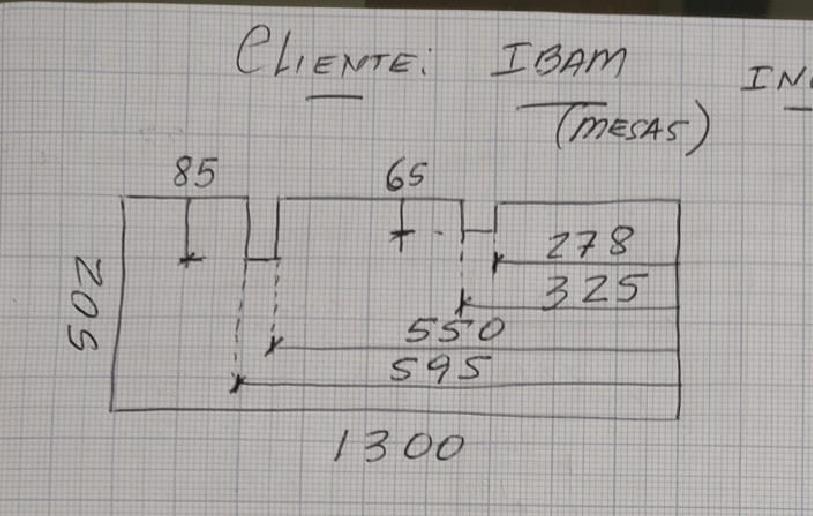 CLIENTE: IBAM
(MESAS)
85 65
278
205
325
550
595
1300